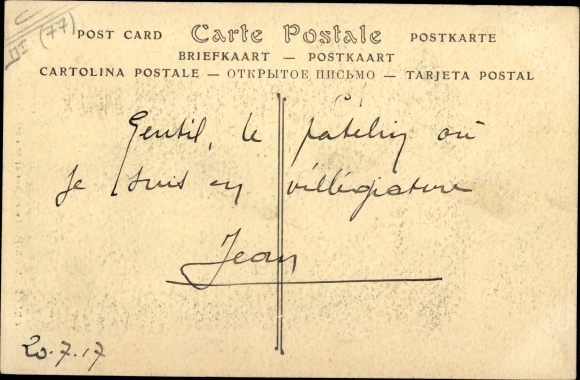 (77)
POST CARD Carte Postale POSTKARTE
BRIEFKAART — POSTKAART
CARTOLINA POSTALE — ОТКРЫТОЕ ПИСЬМО — TARJETA POSTAL
Gentil, le patelin où
Je suis en villégiature
Jean
20.7.17